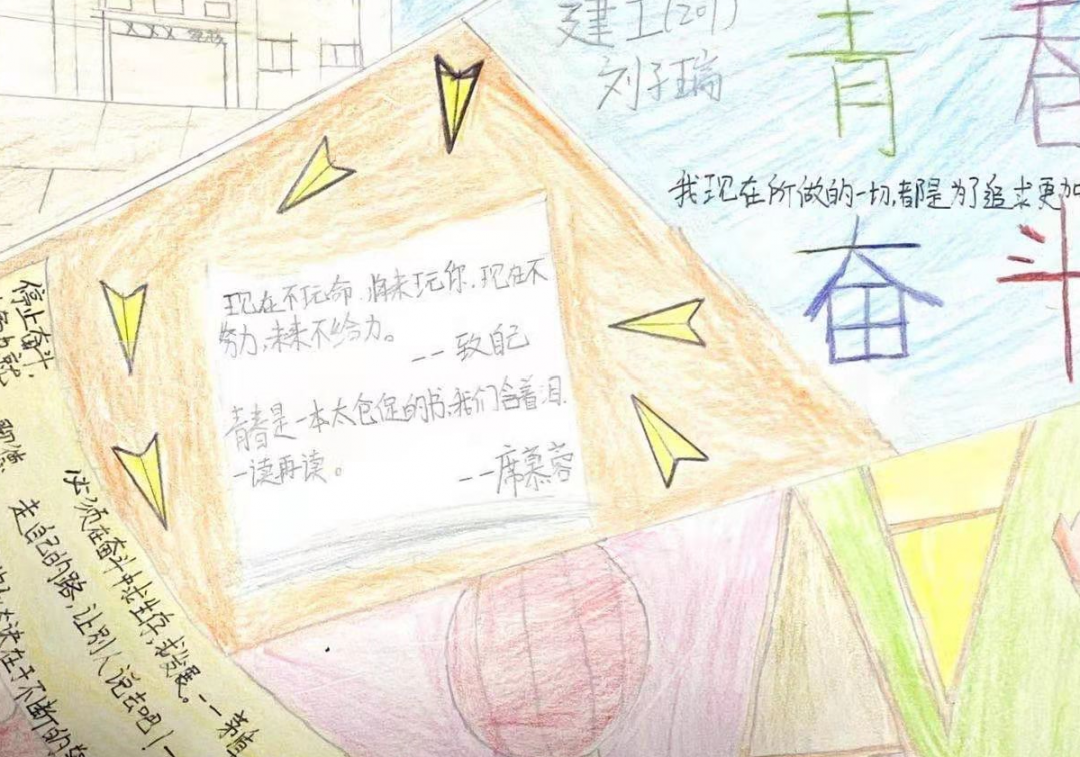 XXX 学校
建工(201)
刘子瑞
青春
我现在所做的一切,都是为了追求更加
奋斗
现在不玩命,将来玩你,现在不
努力,未来不给力。
--致自己
青春是一本太仓促的书,我们含着泪,
一读再读。
--席慕蓉
停止奋斗,
必须在奋斗中求生存,求发展。--茅盾
走自己的路,让别人说去吧!—
诀在于不断的